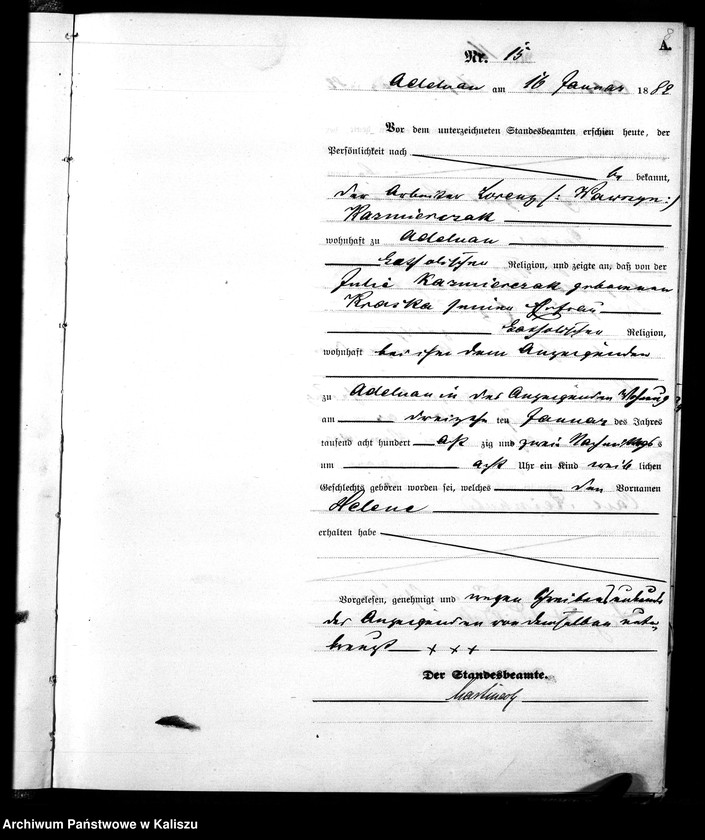 A.
Nr. 15
Adelnau am 16 Januar 1882
Vor dem unterzeichneten Standesbeamten erschien heute, der
Persönlichkeit nach
be kannt,
der Arbeiter Lorenz /: Wawrzyn :/
Kazmierczak
wohnhaft zu Adelnau
katholischer Religion, und zeigte an, daß von der
Julie Kazmierczak geborenen
Kraska seiner Ehefrau
katholischer Religion,
wohnhaft bei ihm dem Anzeigenden
zu Adelnau in des Anzeigenden Wohnung
am dreizehn ten Januar des Jahres
tausend acht hundert acht zig und zwei Nachmittags
um acht Uhr ein Kind weib lichen
Geschlechts geboren worden sei, welches den Vornamen
Helene
erhalten habe
Vorgelesen, genehmigt und wegen Schreibensunkunde
des Anzeigenden von demselben unter
kreuzt + + +
Der Standesbeamte.
Archiwum Państwowe w Kaliszu